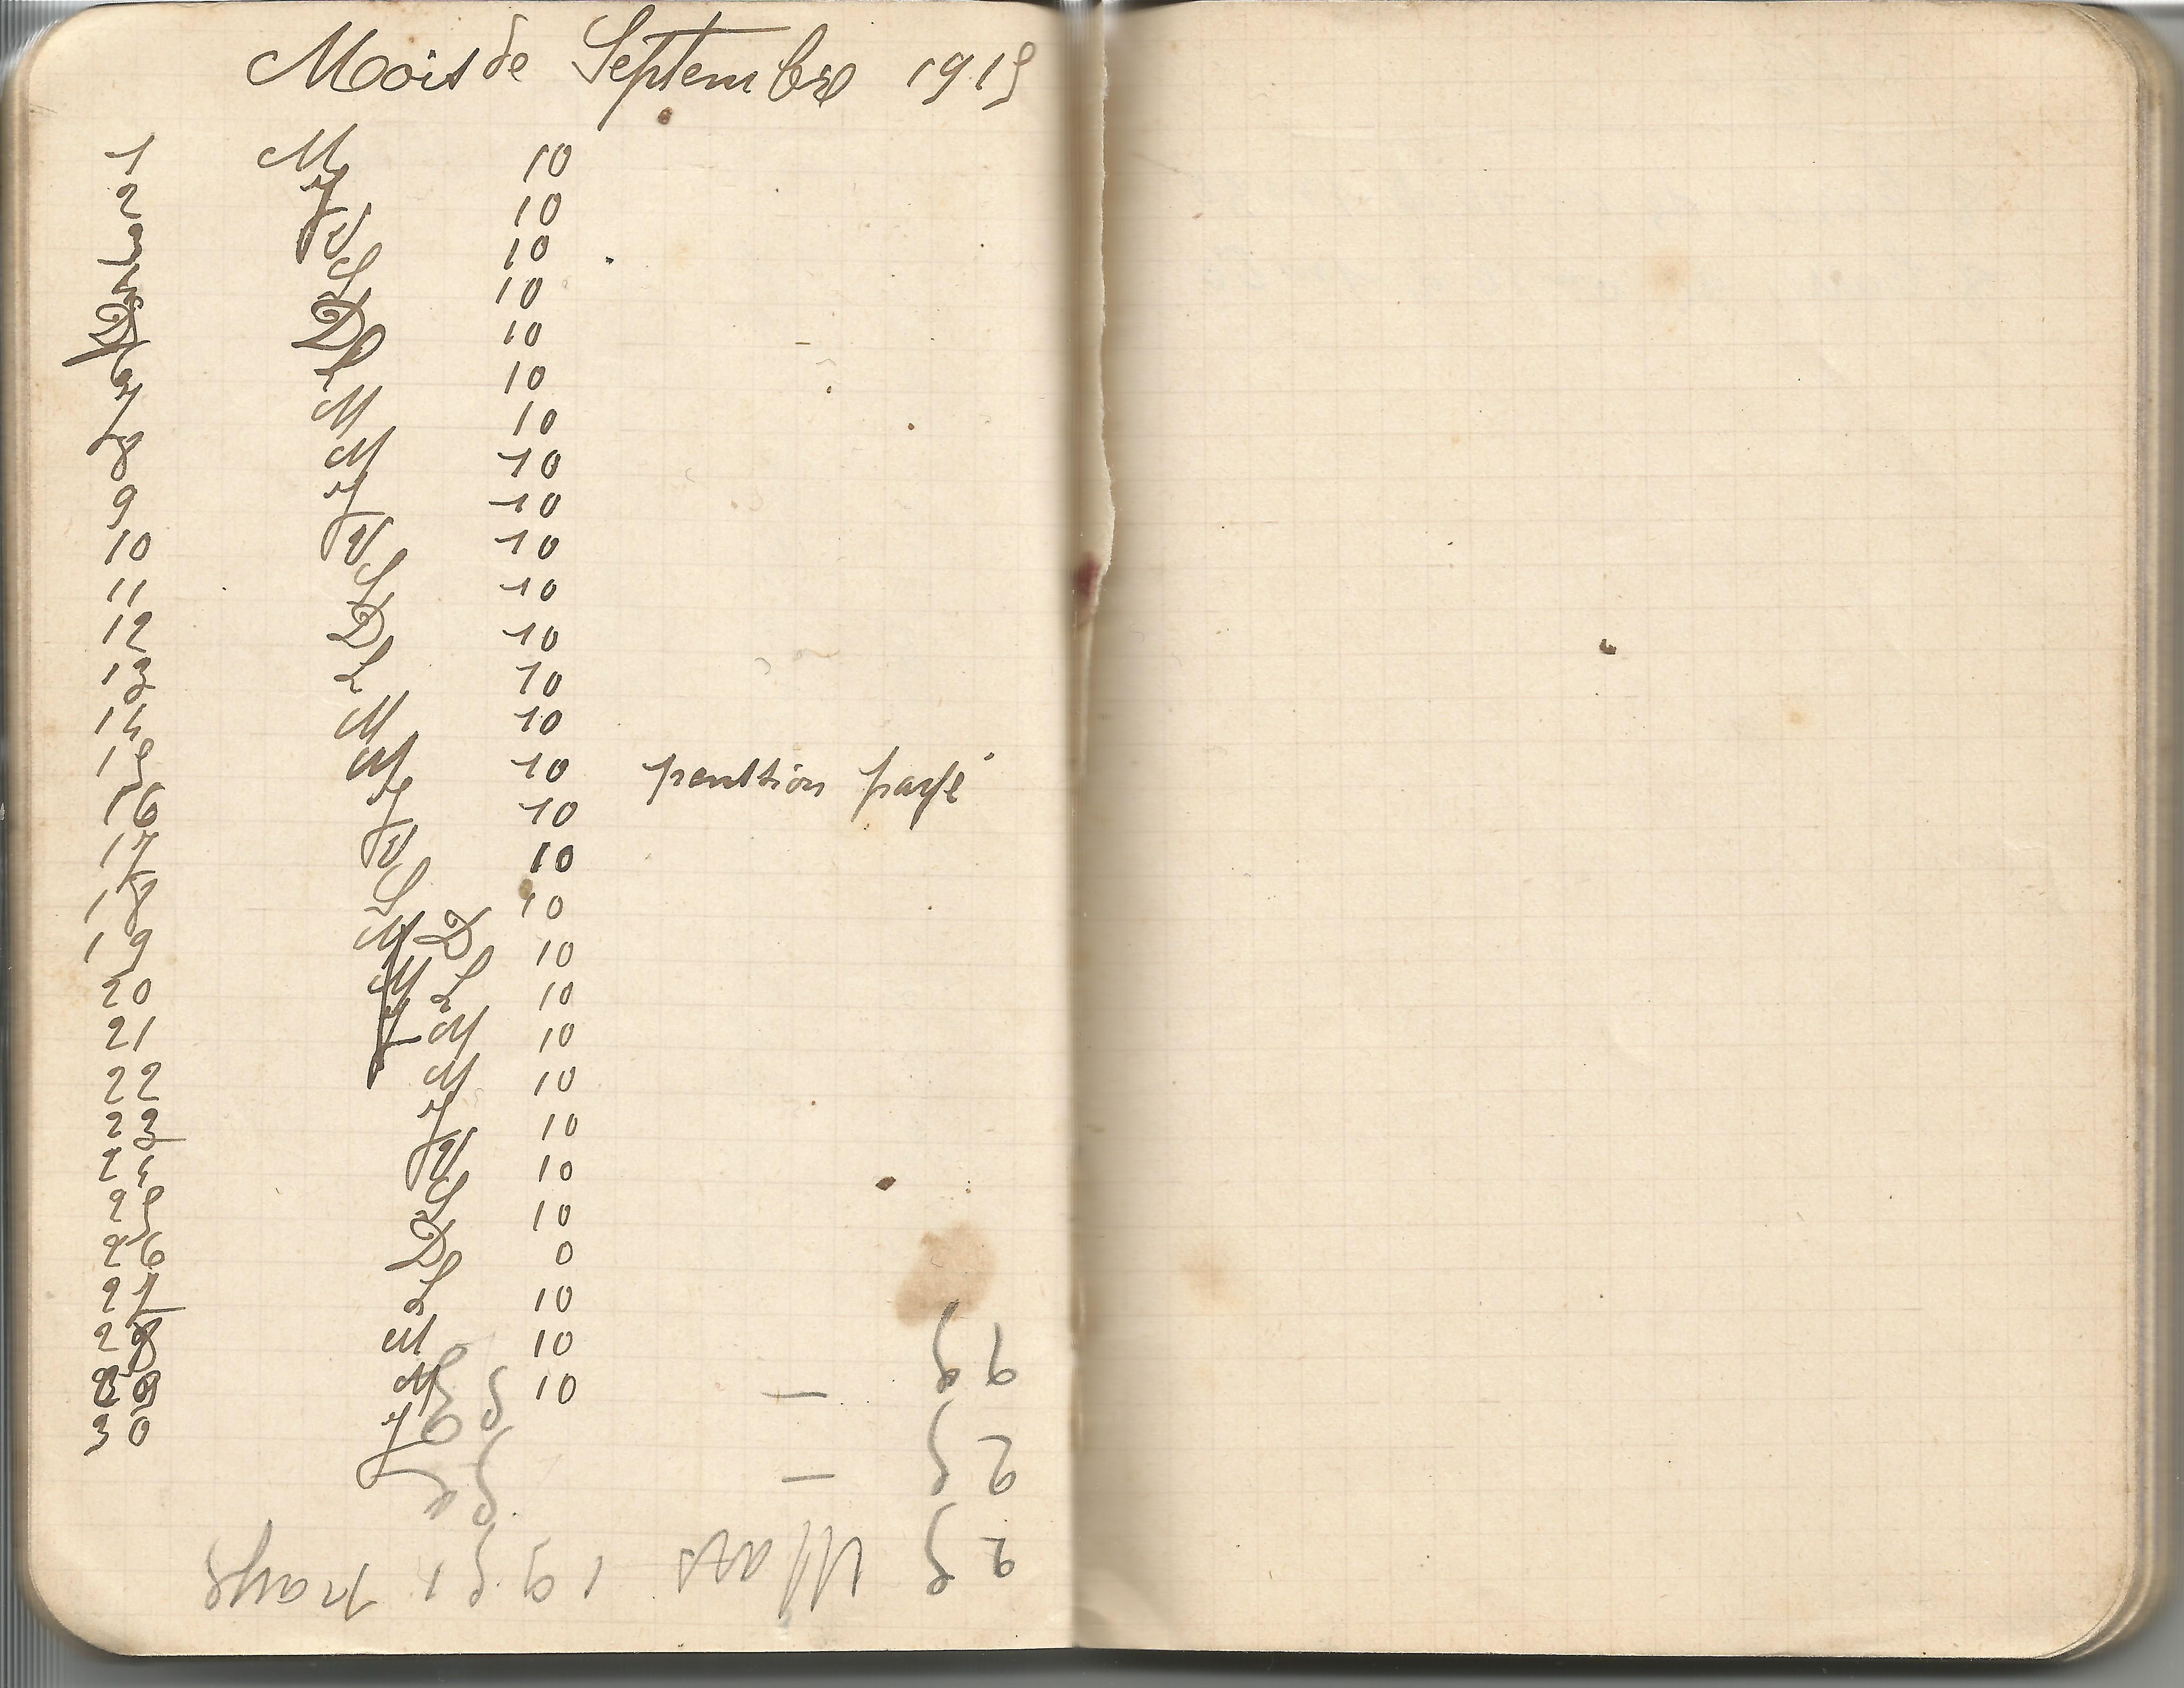 Mois de Septembre 1915
1 M 10
2 J 10
3 V 10
4 S 10
5 D 10
6 L 10
7 M 10
8 M 10
9 J 10
10 V 10
11 S 10
12 D 10
13 L 10
14 M 10
15 M 10 penttion payé
16 J 10
17 V 10
18 S 10
19 M D 10
20 M L 10
21 J M 10
22 M 10
23 J 10
24 V 10
25 S 10
26 D 0
27 L 10
28 M 10
29 M 10
30 J
25 Mars payé
25 —